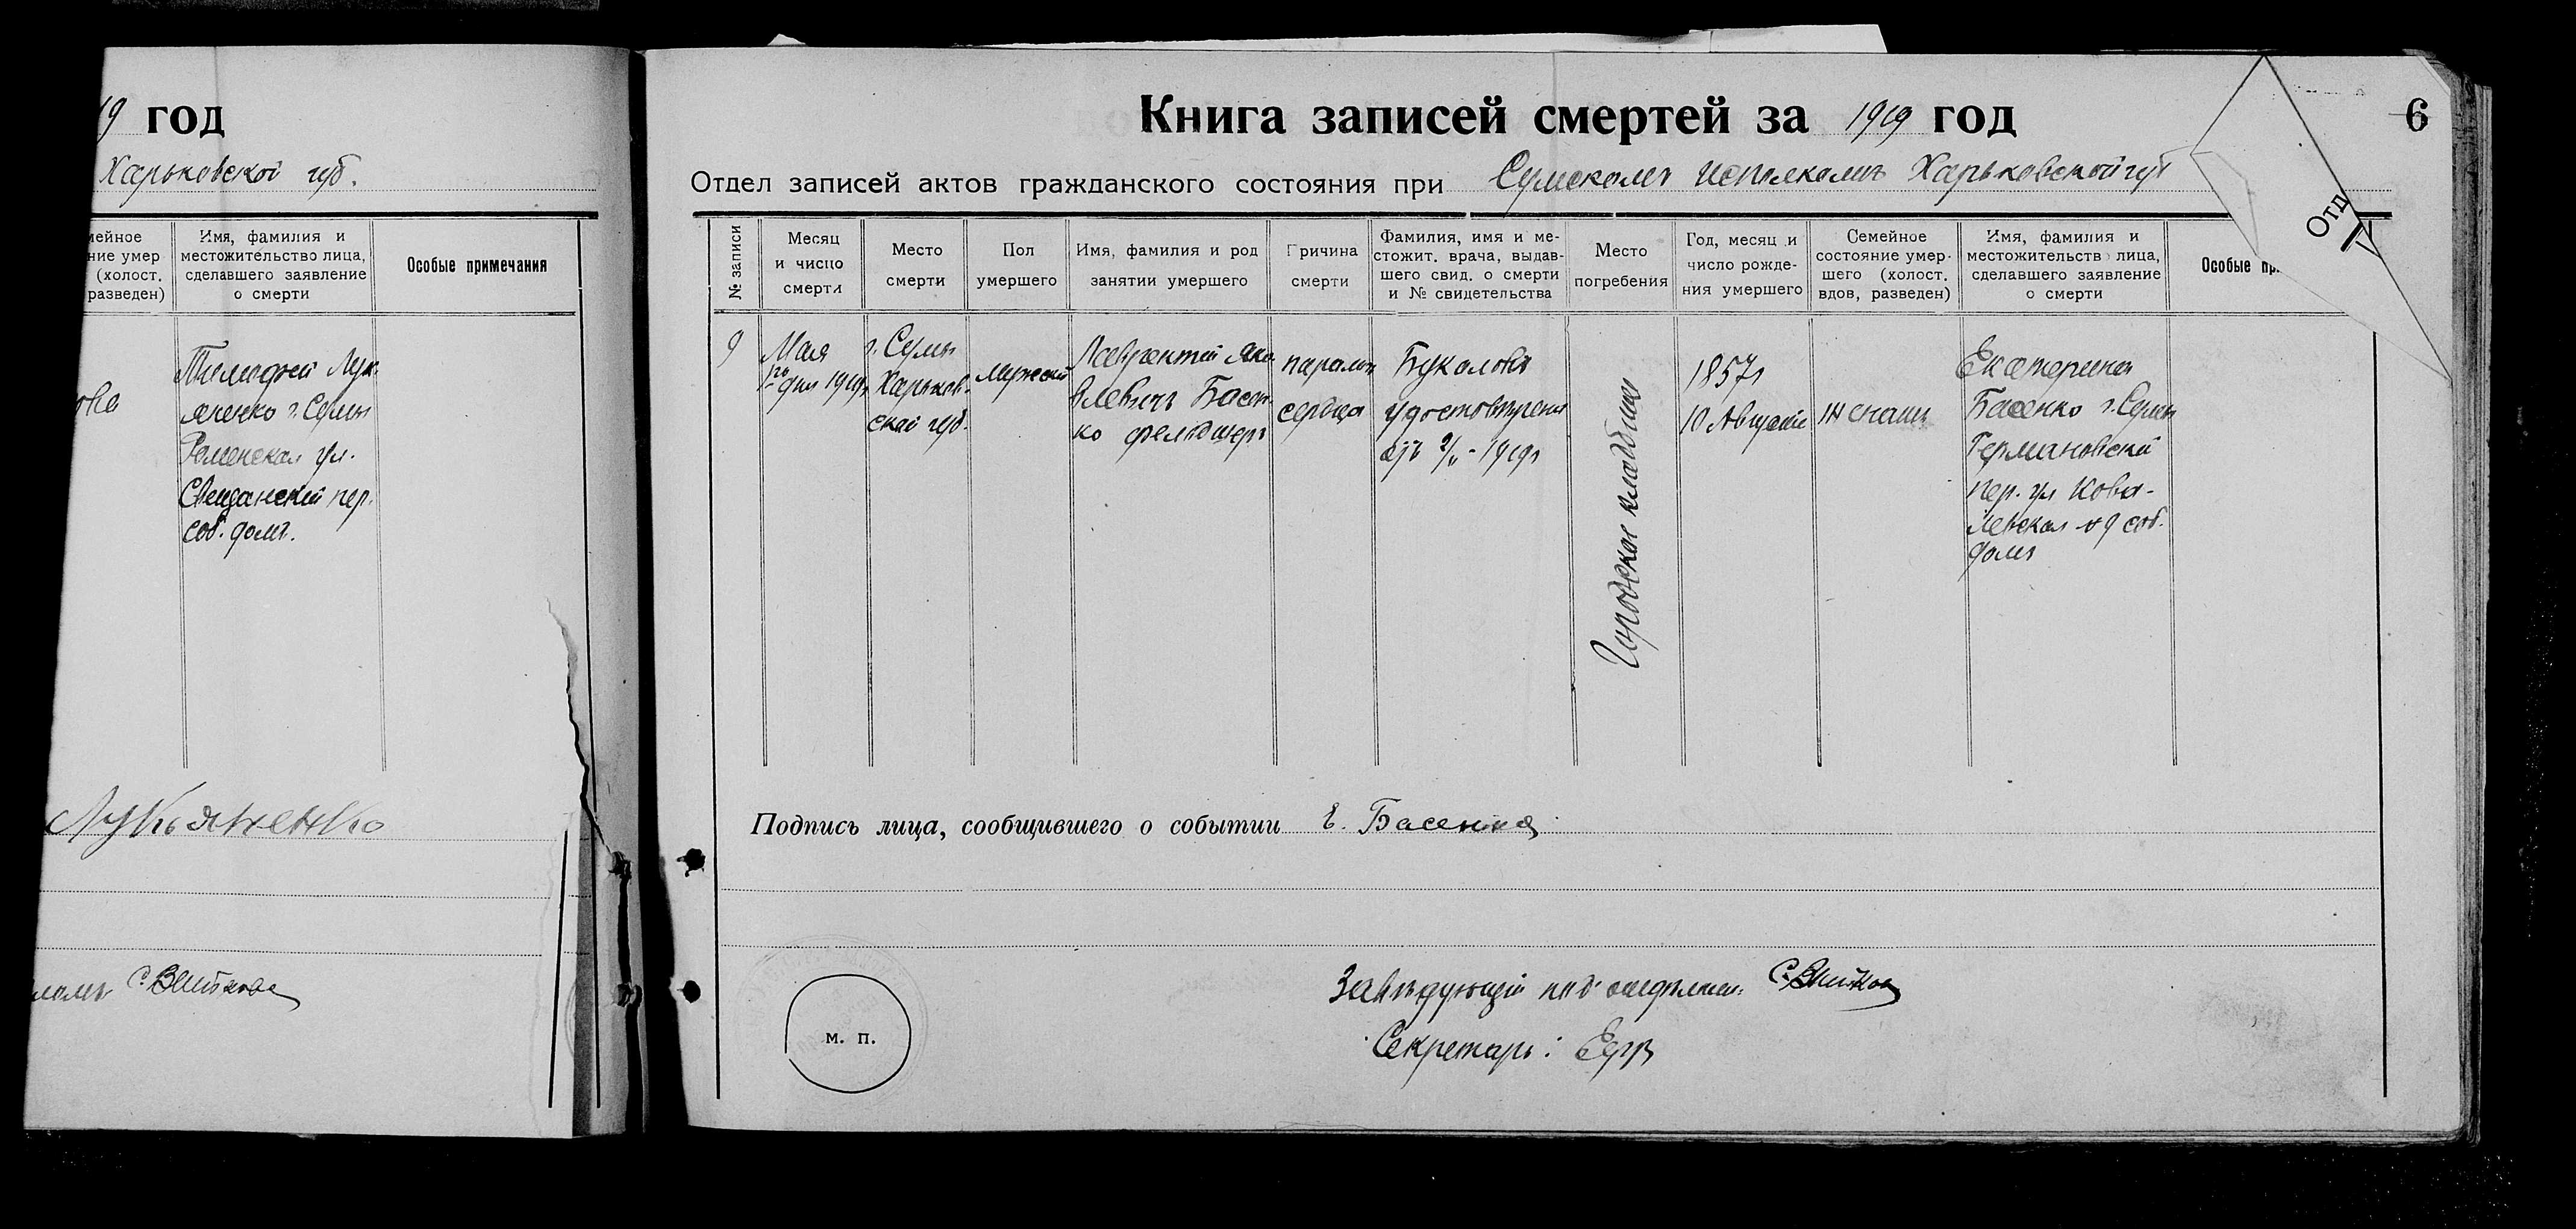 19 год
Харьковской губ.
мейное
ние умер
(холост.
разведен)
Имя, фамилия и
местожительство лица,
сделавшего заявление
о смерти
Особые примечания
Тимофей Лук-
яненко г. Сумы
Роменская ул.
пер.
соб. домъ.
Лукьяненко
6
Книга записей смертей за 1919 год
Отдел записей актов гражданского состояния при Сумскомъ Исполкомъ Харьковской губ
Отд
№ записи
Месяц
и число
смерти
Место
смерти
Пол
умершего
Имя, фамилия и род
занятии умершего
Причина
смерти
Фамилия, имя и ме-
стожит. врача, выдав-
шего свид. о смерти
и № свидетельства
Место
погребения
Год, месяц и
число рожде-
ния умершего
Семейное
состояние умер-
шего (холост.
вдов, разведен)
Имя, фамилия и
местожительств лица,
сделавшего заявление
о смерти
Особые пр
9
Мая
1го дня 1919г
г. Сумы
Харьков-
ской губ.
мужской
Лаврентий Яко-
влевичъ Басен-
ко фельдшеръ
паралич
сердца
Букалова
удостоверен
1919г
Городское кладбище
1857г
10 Августа
женатъ
Екатерина
Басенко г. Сумы
Германовский
пер. ул Кова-
левская № 9 соб.
домъ
Подпись лица, сообщившего о событии Е. Басенко
Завѣдующій подотделом:
Секретарь:
м. п.